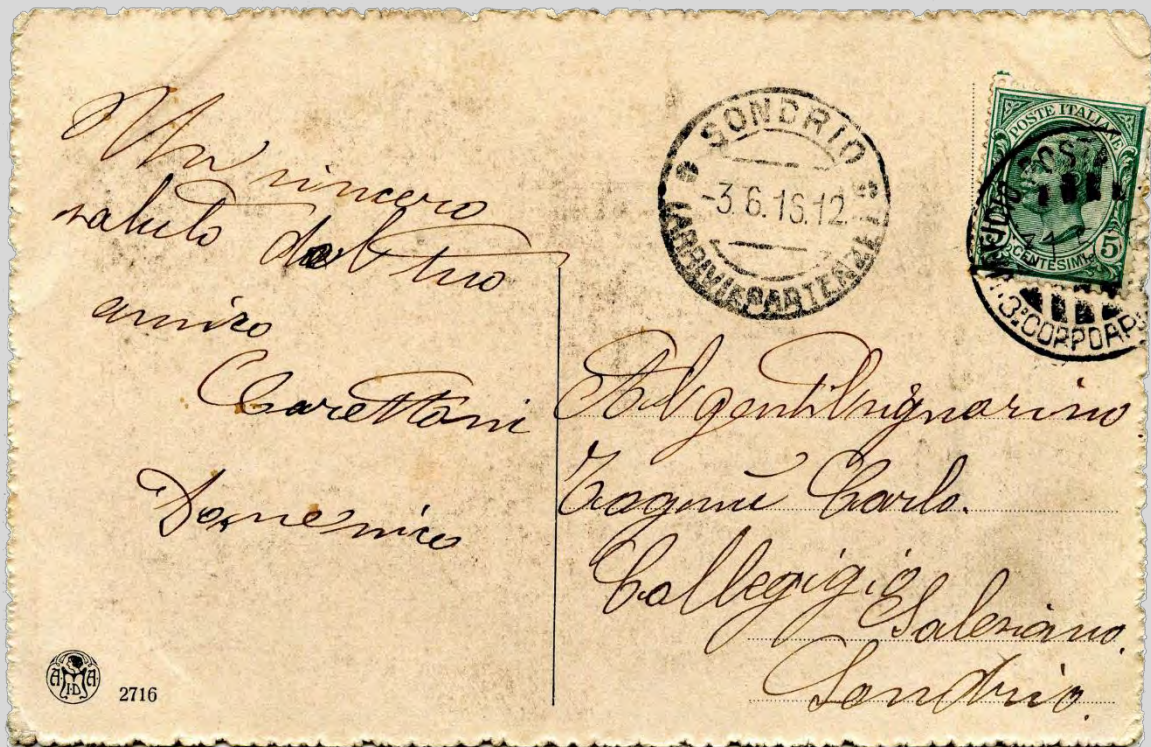 Un sincero
saluto dal tuo
amico
Carettoni
Domenico
2716
SONDRIO
-3.6.16.12
(ARRIVI E PARTENZE)
POSTE ITALIANE
CENTESIMI 5
POSTA
3º CORPO
Al gentil signorino
Carlo.
Collegigio
Salesiano.
Sondrio.